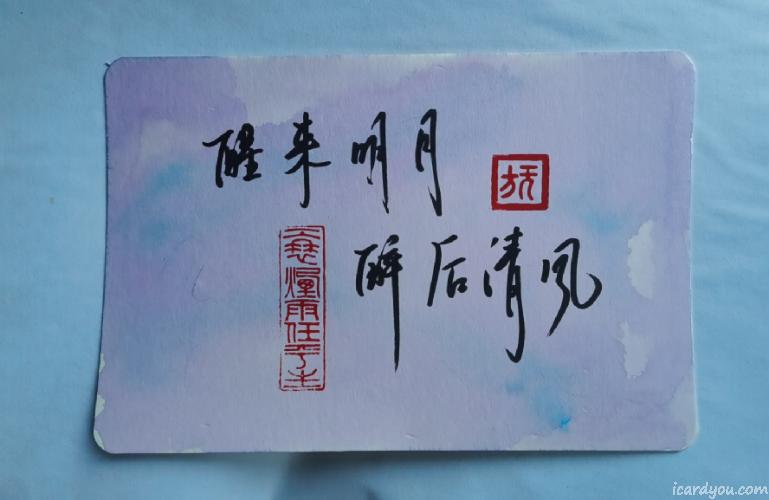 醒来明月
醉后清风
一蓑烟雨任平生
icardyou.com